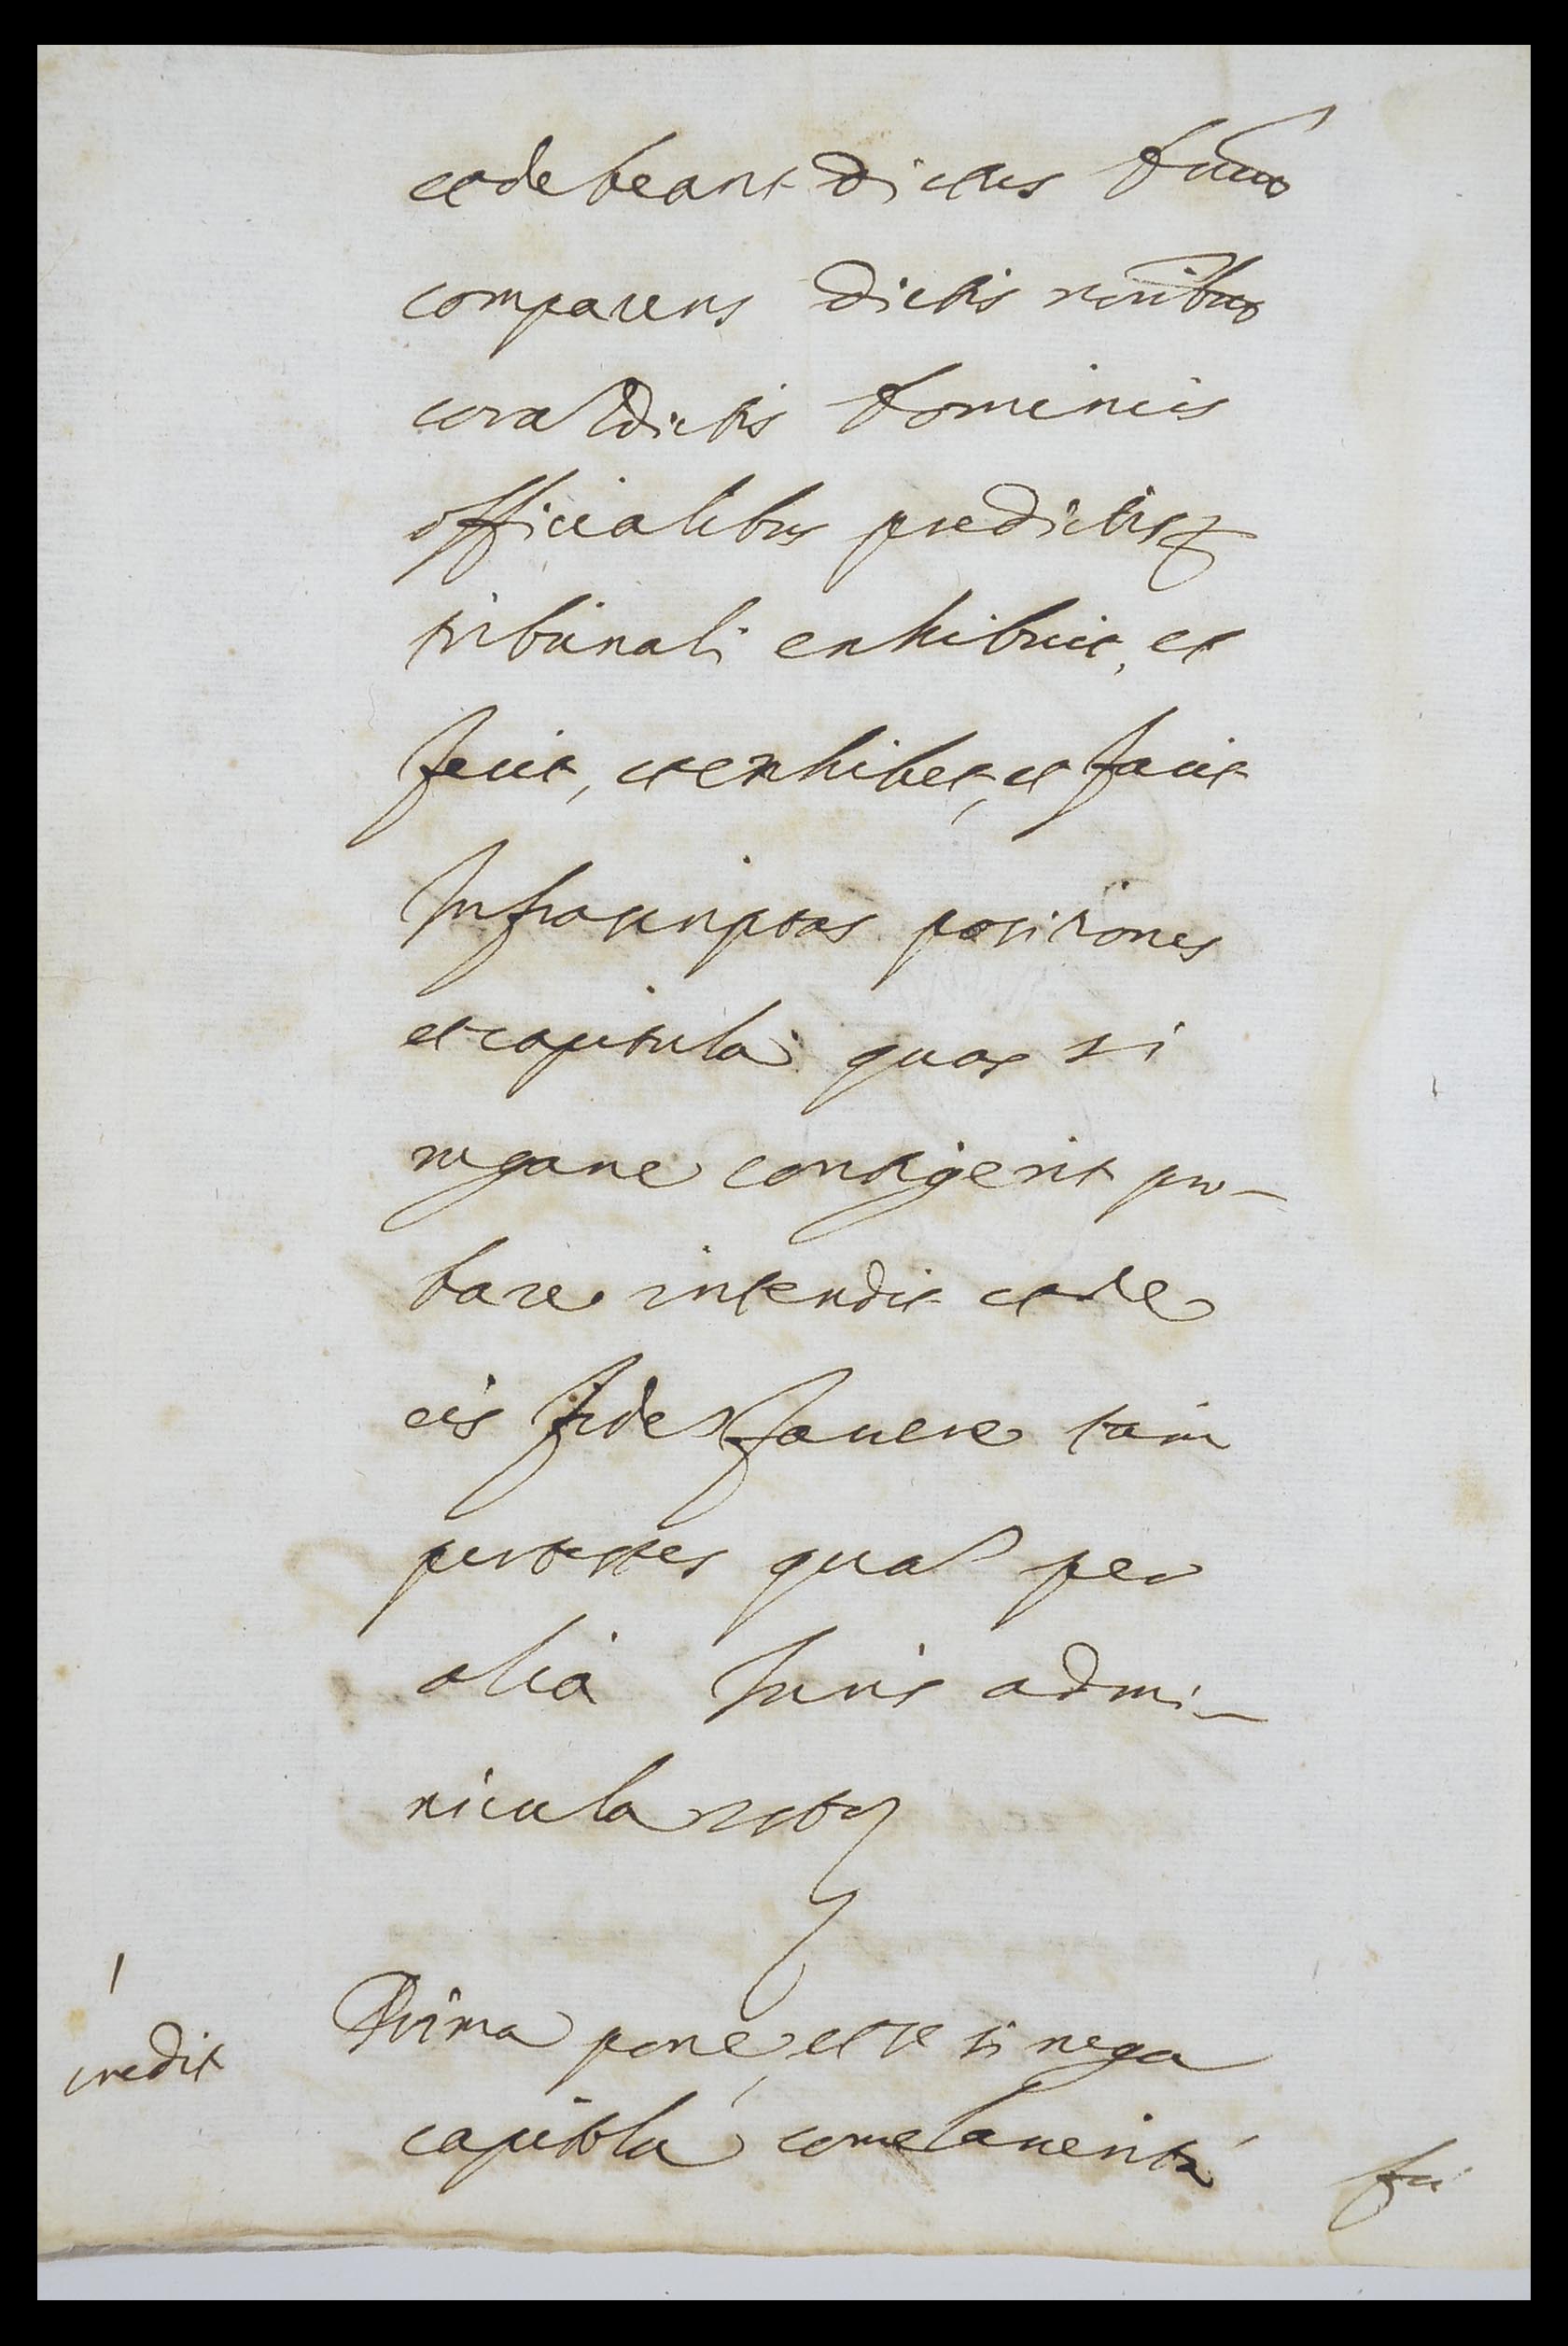 et debeant Dictus
comparens Dictis noĩbus
corã Dictis Dominis
officialibus predictis
tribunali exhibuit, et
fecit, et exhibet, et facit
Infrascriptas positiones
et capitula quas si
negare contigerit pro-
bare intendit et de
eis fidem facere tam
per testes quam per
alia Iuris admi-
nicula
1
credit
Prima pone, et se si nega
capitola come la verità
fu